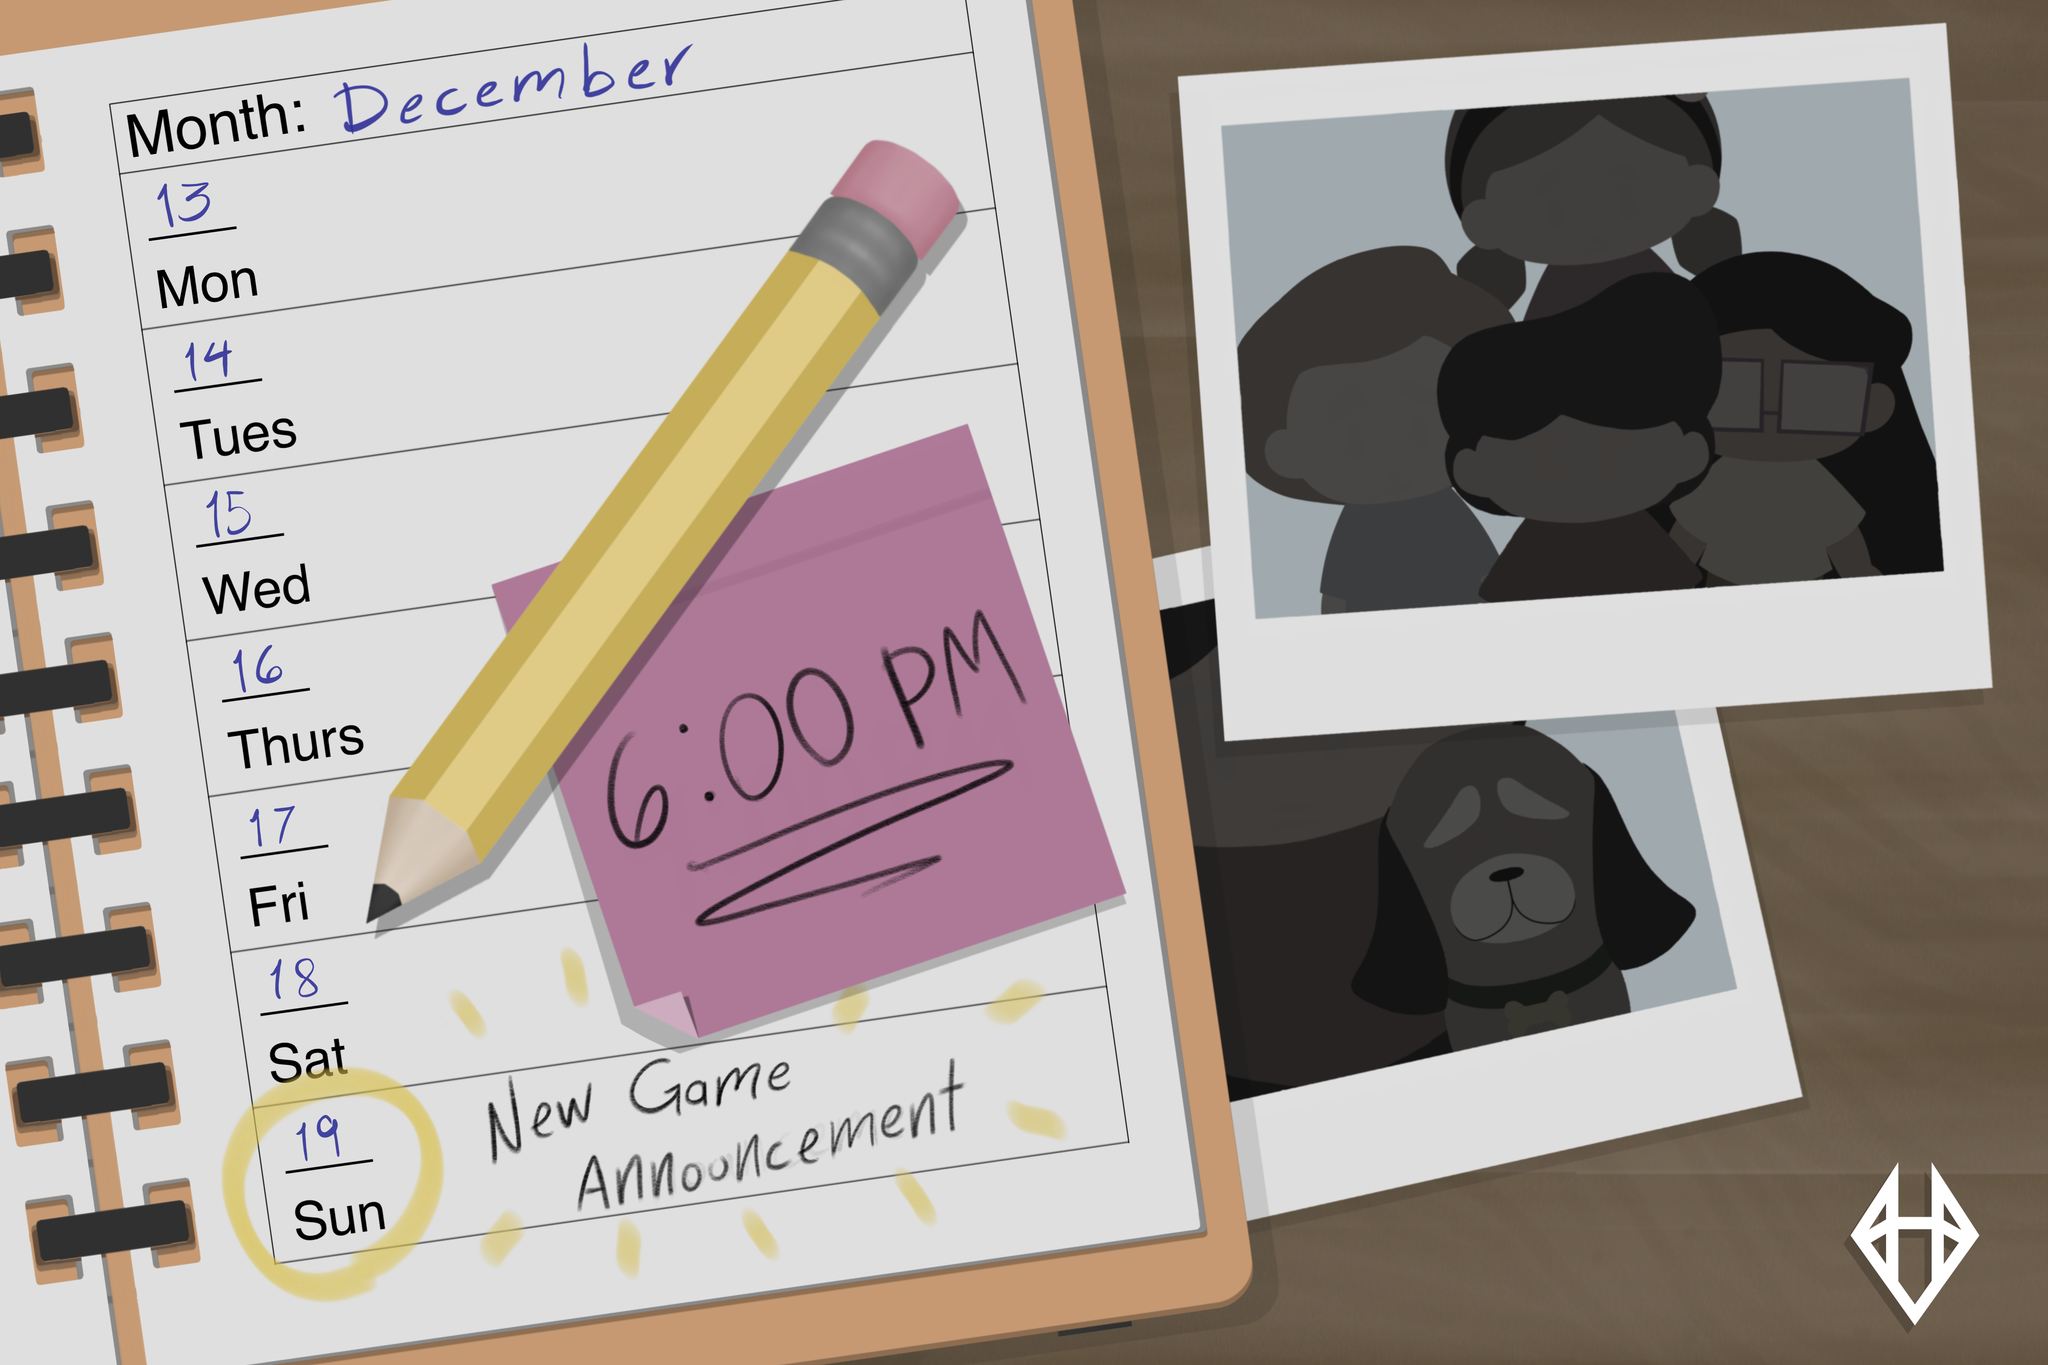 Month: December
13
Mon
14
Tues
15
Wed
16
Thurs
17
Fri
18
Sat
19
Sun
New Game
Announcement
6:00 PM